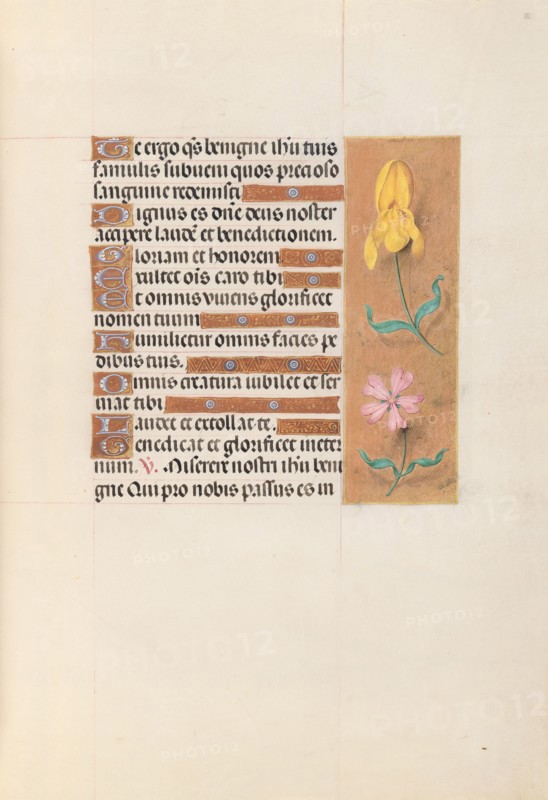 Te ergo qs benigne ihu tuis
famulis subueni quos precioso
sanguine redemisti
Dignus es dne deus noster
accipere laude et benedictionem.
Gloriam et honorem
Exultet ois caro tibi
Et omnis viuens glorificet
nomen tuum
Humilietur omnis facies pe
dibus tuis.
Omnis creatura iubilet et ser
uiat tibi
Laudet et extollat te.
Benedicat et glorificet in eter
num. V. Miserere nostri ihu beni
gne Qui pro nobis passus es in
PHOTO12